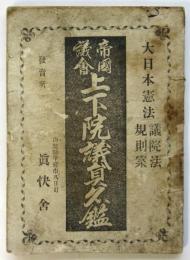 大日本憲法 議院法
規則案
帝國
議會
上下院議員名鑑
發賣所
眞快舍